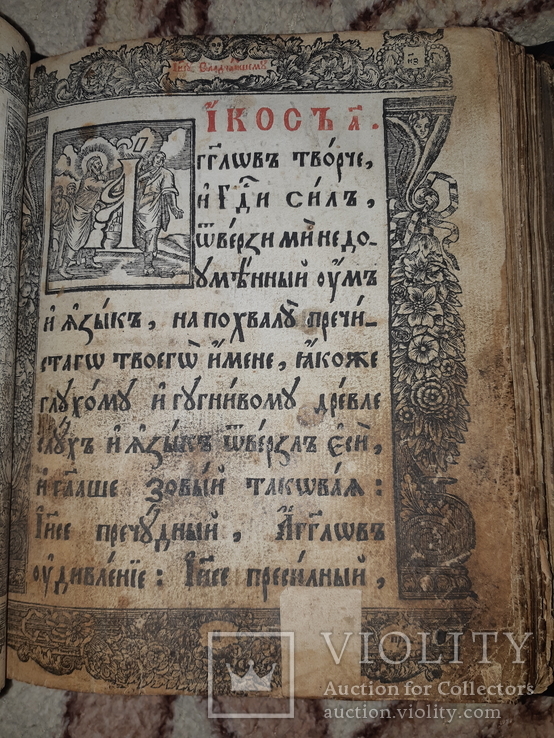 І҆и҃сꙋ Сладчайшемꙋ
І҆́КОСЪ а҃.
гг҃лѡвъ тво́рче,
и҆ Гдⷭ҇и си́лъ,
ѿве́рзи ми недо-
ꙋмѣ́нный ᲂу҆́мъ
и҆ ѧ҆зы́къ, на похвалꙋ̀ пречи́-
стагѡ твоегѡ̀ и҆́мене, ꙗ҆́коже
глꙋхо́мꙋ и҆ гꙋгни́вомꙋ дре́вле
слꙋ́хъ и҆ ѧ҆зы́къ ѿве́рзлъ є҆сѝ,
и҆ гл҃аше зовы́й такѡва́ѧ:
І҆и҃се пречꙋ́дный, А҆́гг҃лѡвъ
ᲂу҆дивле́нїе: І҆и҃се преси́лный,
VIOLITY
Auction for Collectors
auction.violity.com